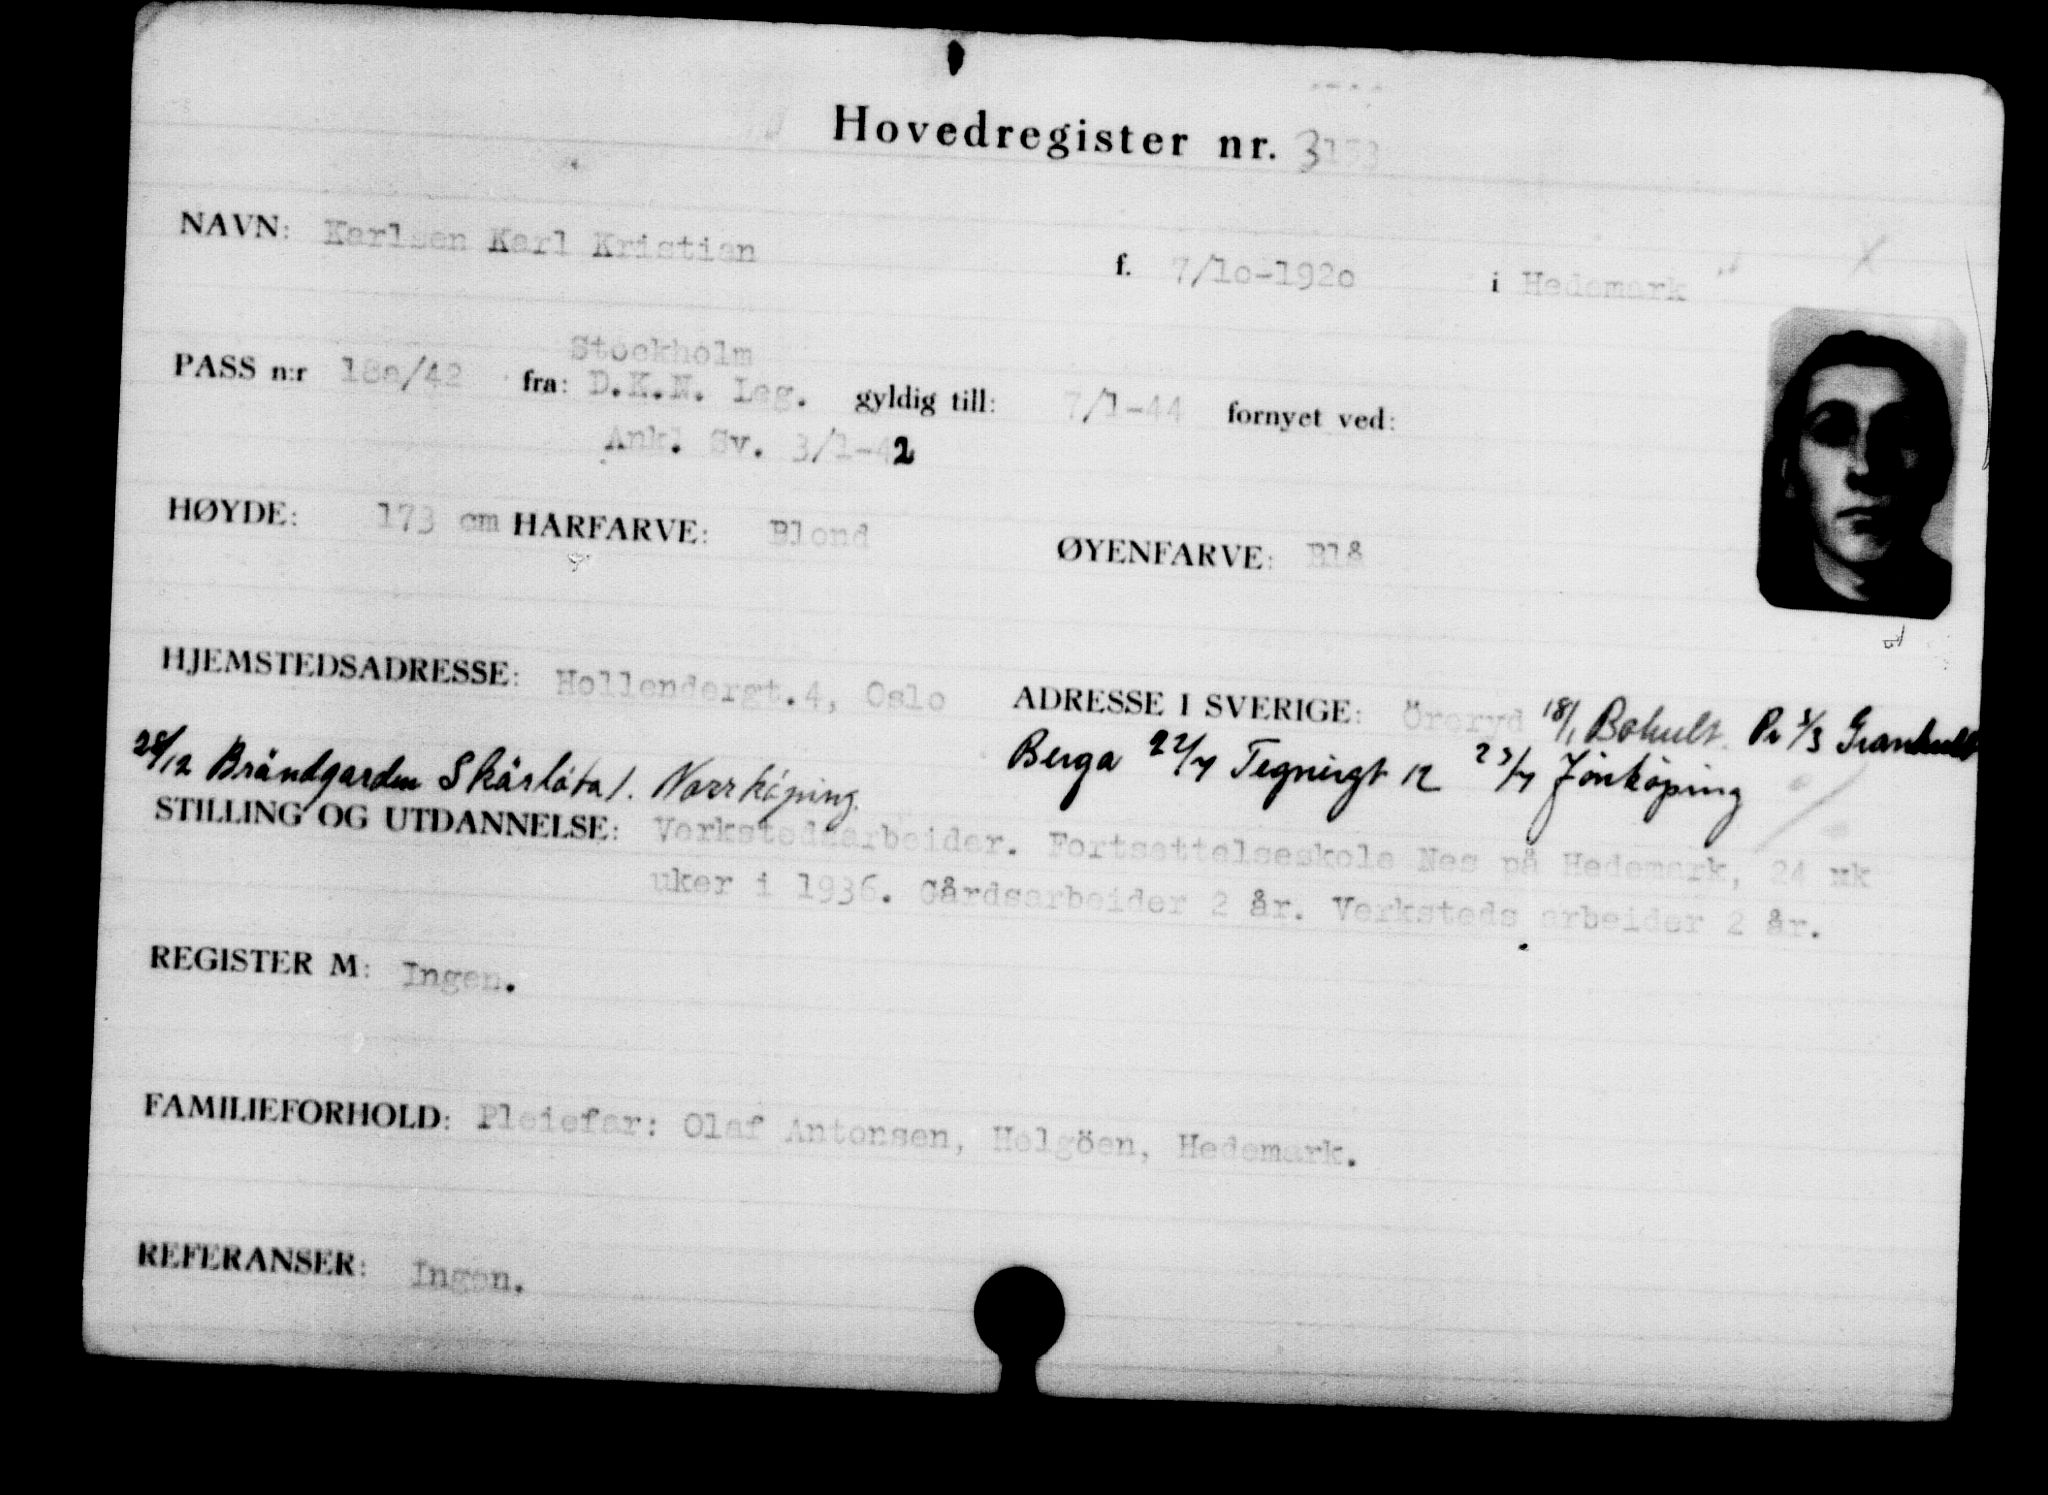 Hovedregister nr. 3153
NAVN: Karlsen Karl Kristian f. 7/1o-192o i Hedemark
Stockholm
PASS n:r 18o/42 fra: D.K.N. Leg. gyldig till: 7/1-44 fornyet ved:
Ankl. Sv. 3/1-42
HØYDE: 173 cm HARFARVE: Blond ØYENFARVE: Blå
HJEMSTEDSADRESSE: Hollendergt.4, Oslo ADRESSE I SVERIGE: Öreryd 18/1 Bokult. Pr 1/3 Granhult
28/12 Brändgarden Skärlöta 1. Norrköping. Berga 22/7 Tegnirgt 12 23/7 Jönköping
STILLING OG UTDANNELSE: Verkstedsarbeider. Fortsettelseskole Nes på Hedemark, 24 uk
uker i 1936. Gårdsarbeider 2 år. Verksteds arbeider 2 år.
REGISTER M: Ingen.
FAMILIEFORHOLD: Pleiefar: Olaf Antonsen, Helgöen, Hedemark.
REFERANSER: Ingen.